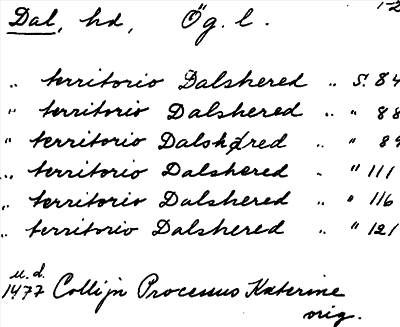 Dal, hd, Ög. l. 1-2
„ territorio Dalshered „ S. 84
„ territorio Dalshered „ „ 88
„ territorio Dalshøred „ „ 89
„ territorio Dalshered „ „ 111
„ territorio Dalshered „ „ 116
„ territorio Dalshered „ „ 121
u. d.
1477 Collijn Processus Katerine
orig.